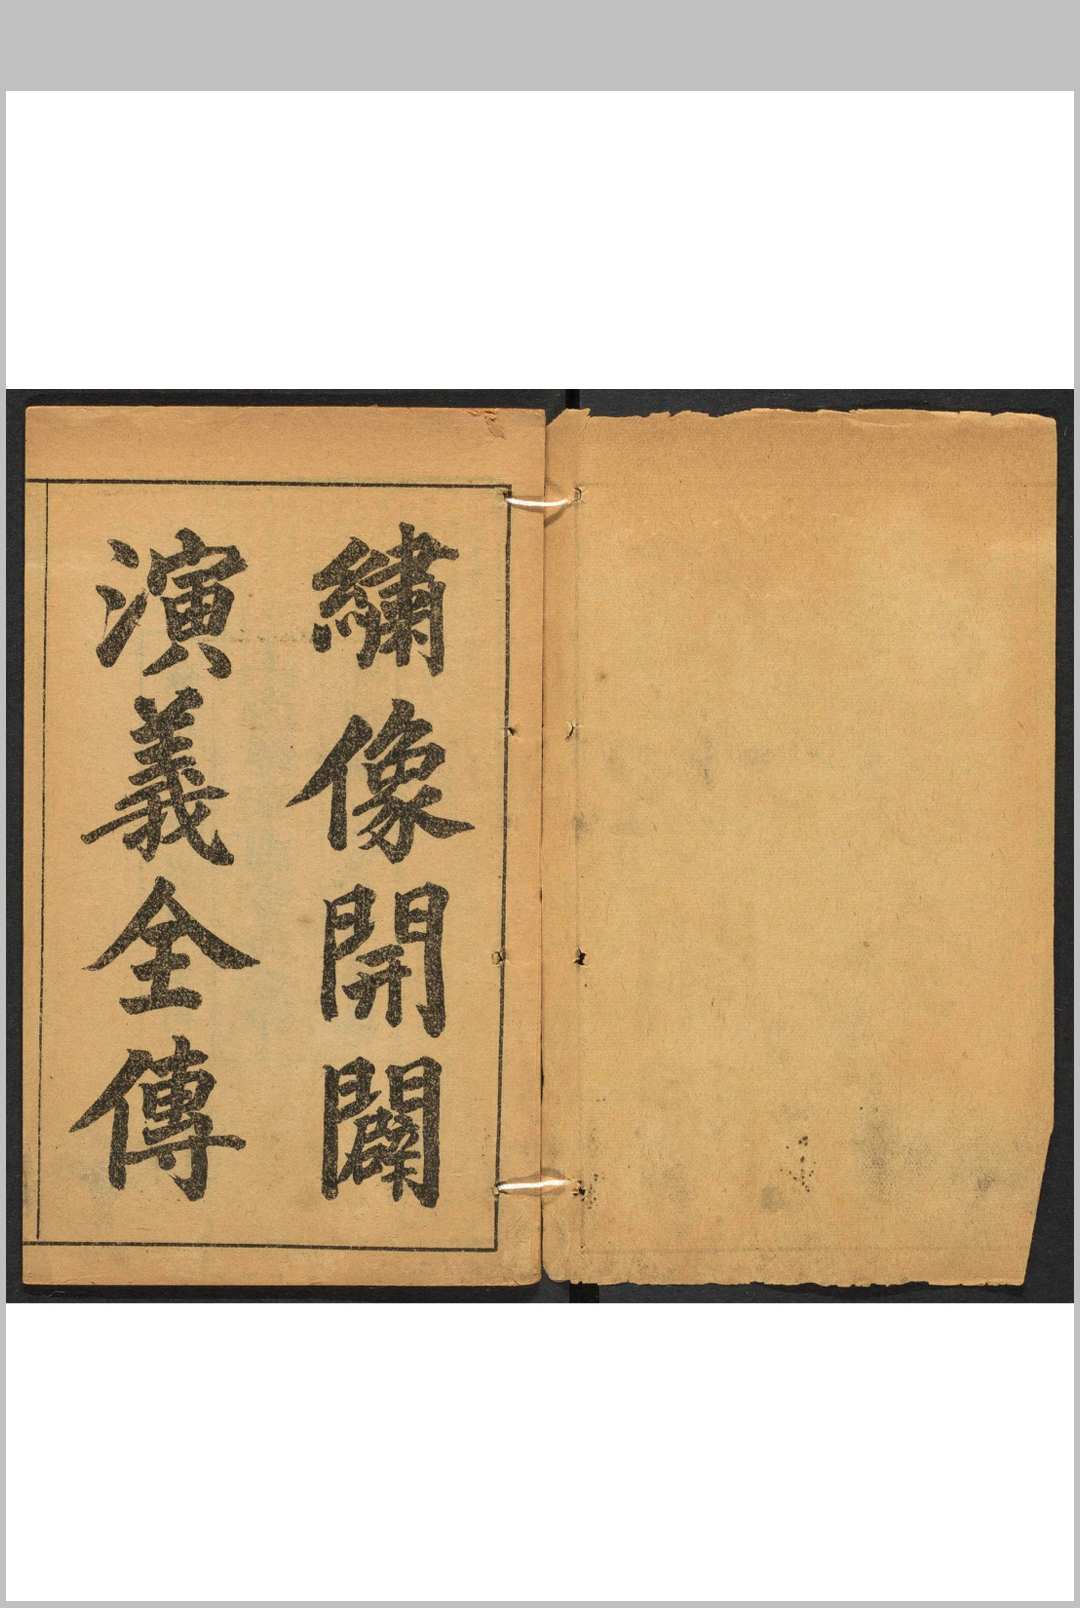 繡像開闢
演義全傳